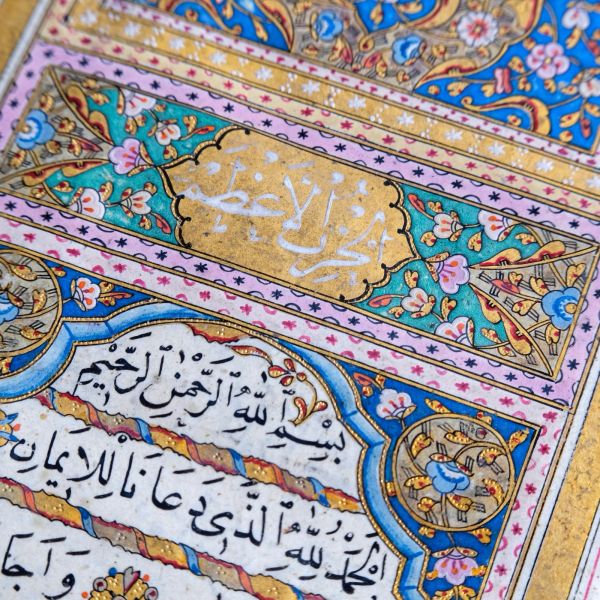 الحزب الأعظم
بِسْمِ اللهِ الرَّحْمٰنِ الرَّحِيْمِ
اَلْحَمْدُ لِلّٰهِ الَّذِىْ دَعَانَا لِلْاِيمَانِ